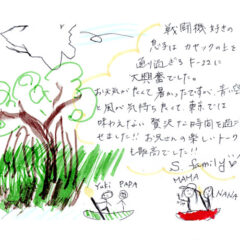 戦闘機好きの
息子は カヤックの上を
通り過ぎる F-22に
大興奮でした。
お天気がよくて 暑かったですが、青い空
と風が気持ちよくて 東京では
味わえない 贅沢な時間を過ご
せました!! お兄さんの楽しいトーク
も最高でした!!
S. family
MAMA
Yuki PAPA
NANA